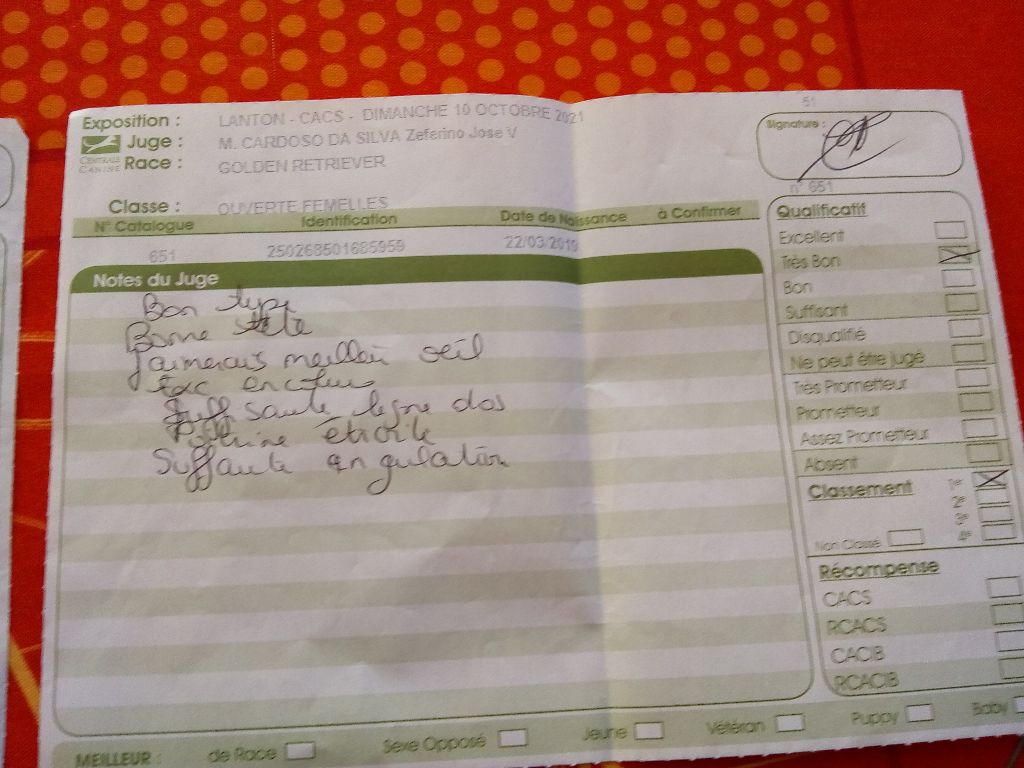 51
Exposition : LANTON - CACS - DIMANCHE 10 OCTOBRE 2021
Juge : M. CARDOSO DA SILVA Zeferino Jose V
CENTRALE CANINE
Race : GOLDEN RETRIEVER
Classe : OUVERTE FEMELLES
Signature :
n° 651
N° Catalogue Identification Date de Naissance à Confirmer
651 250268501685959 22/03/2019
Notes du Juge
Bon type
Bonne tête
J'aimerais meilleur oeil
Suffisante ligne dos
Poitrine étroite
Suffisante angulation
Qualificatif
Excellent
Très Bon
Bon
Suffisant
Disqualifié
Ne peut être jugé
Très Prometteur
Prometteur
Assez Prometteur
Absent
Classement 1er
2e
3e
4e
Non Classé
Récompense
CACS
RCACS
CACIB
RCACIB
MEILLEUR : de Race Sexe Opposé Jeune Vétéran Puppy Baby